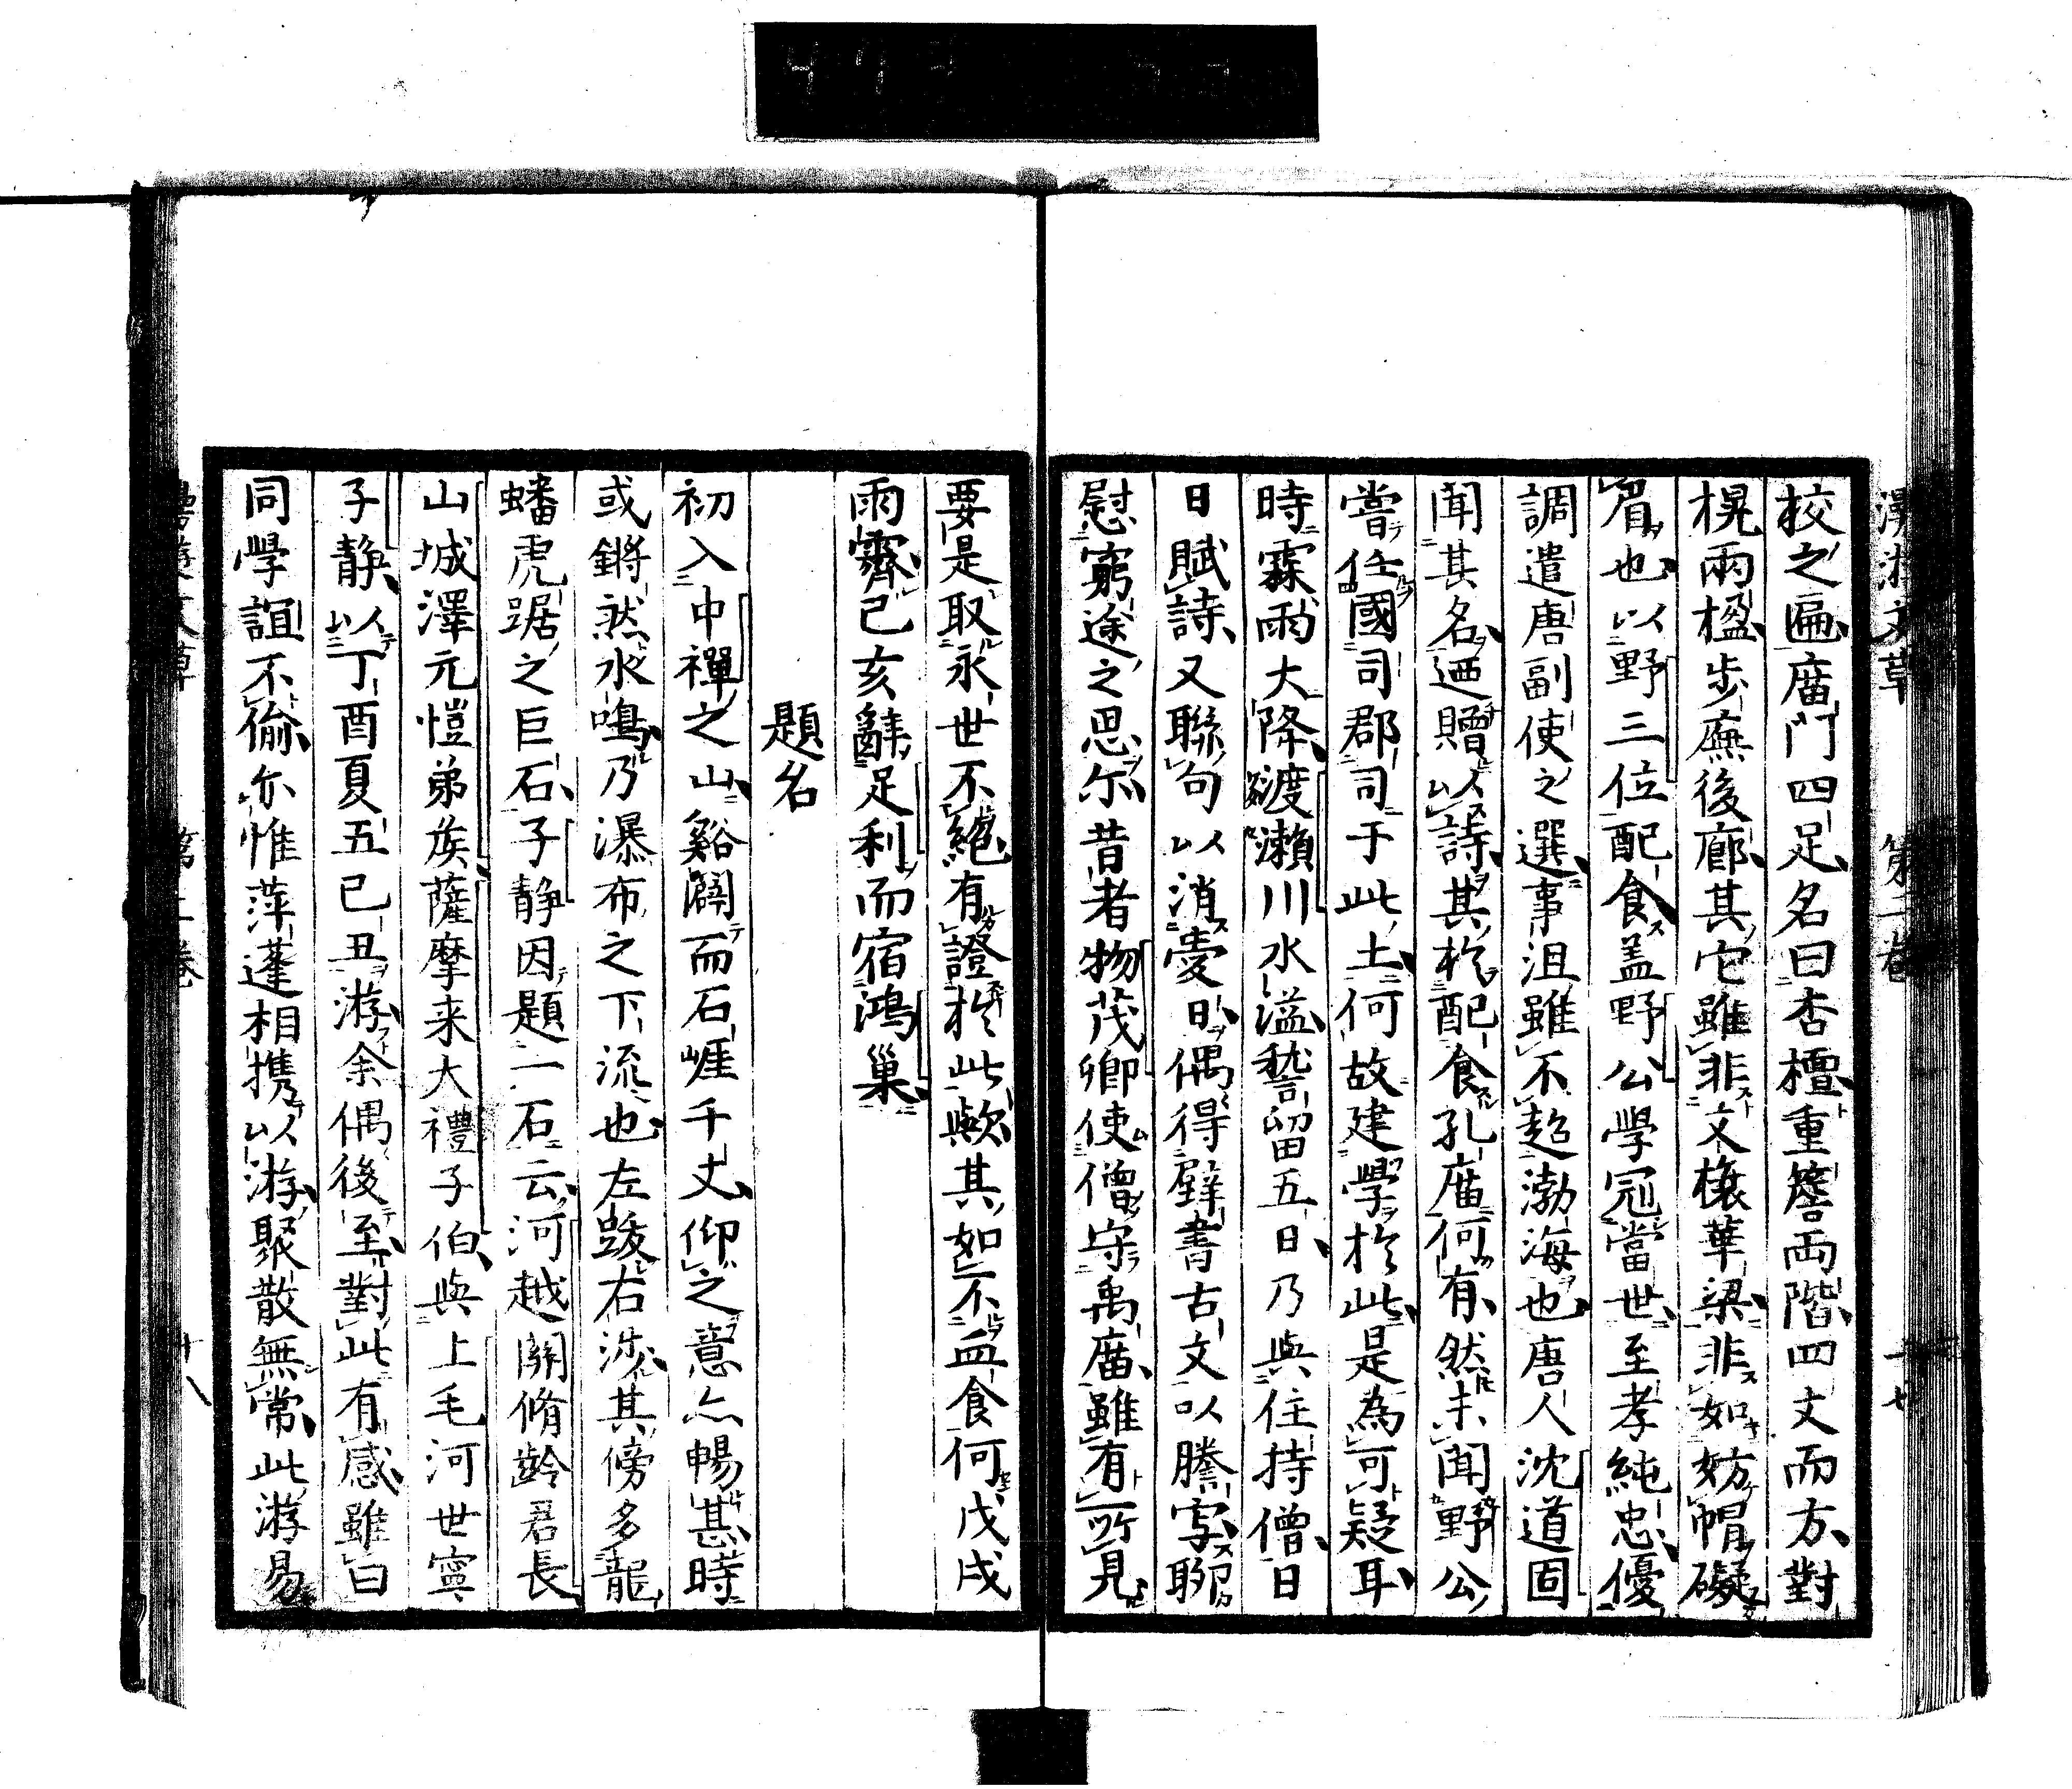 漫游文草　第二卷　十七
校之匾廟門四足名曰杏檀重簷両階四丈而方對
榥兩楹步廡後廊其它雖非文榱華梁非如妨帽礙
眉也以野三位配食盖野公學冠當世至孝純忠優
調遣唐副使之選事沮雖不超渤海也唐人沈道固
聞其名廼贈以詩其於配食孔廟何有然未聞野公
嘗任國司郡司于此土何故建學於此是為可疑耳
時霖雨大降渡瀨川水溢嵆留五日乃與住持僧日
日賦詩又聯句以消憂日偶得壁書古文以謄寫聊
慰窮途之思尓昔者物茂卿使僧守禹廟雖有所見
要是取永世不絕有證於此歟其如不血食何戊戌
雨霽己亥辭足利而宿鴻巢
題名
初入中禪之山谿闢而石崕千丈仰之意亦暢甚時
或鏘然水鳴乃瀑布之下流也左跋右涉其傍多龍
蟠虎踞之巨石子靜因題一石云河越關脩齡君長
山城澤元愷弟族薩摩来大禮子伯與上毛河世寧
子靜以丁酉夏五己丑游余偶後至對此有感雖曰
同學誼不偷亦惟萍蓬相携以游聚散無常此游易
第二卷　十八